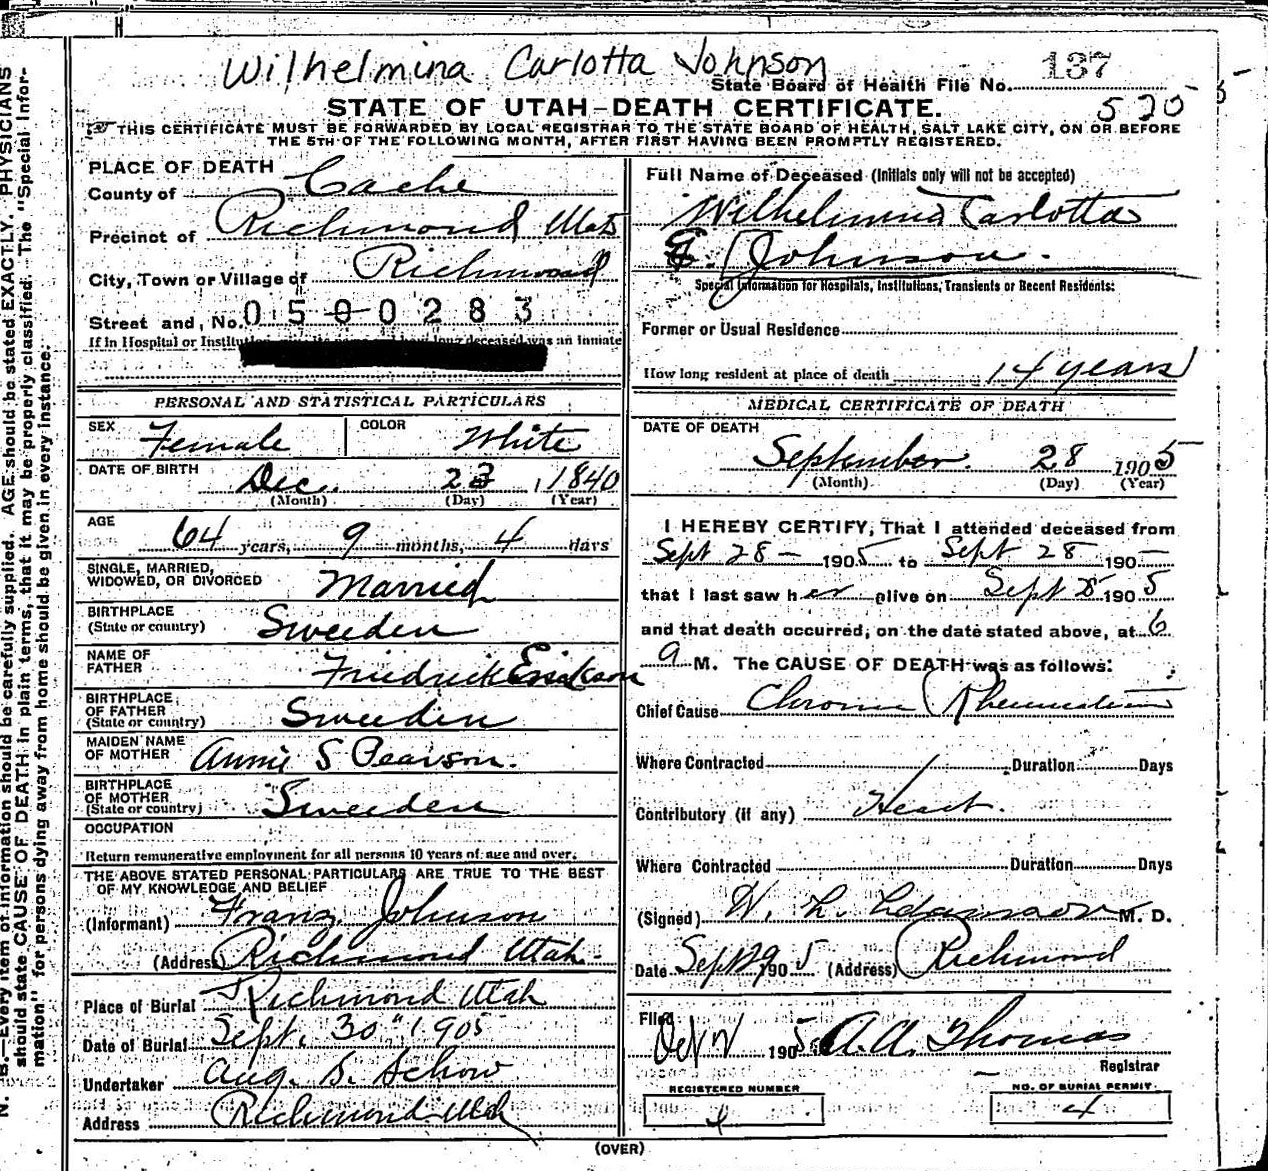 Wilhelmina Carlotta Johnson
State Board of Health File No. 137
525
STATE OF UTAH—DEATH CERTIFICATE.
THIS CERTIFICATE MUST BE FORWARDED BY LOCAL REGISTRAR TO THE STATE BOARD OF HEALTH, SALT LAKE CITY, ON OR BEFORE
THE 5TH OF THE FOLLOWING MONTH, AFTER FIRST HAVING BEEN PROMPTLY REGISTERED.
PLACE OF DEATH
County of Cache
Precinct of Richmond Utah
City, Town or Village of Richmond
Street and, No. 0500283
If in Hospital or how long deceased was an Inmate
Full Name of Deceased (Initials only will not be accepted)
Wilhelmina Carlotta
E. Johnson.
Special Information for Hospitals, Institutions, Transients or Recent Residents:
Former or Usual Residence
How long resident at place of death 14 years
PERSONAL AND STATISTICAL PARTICULARS
SEX Female COLOR White
DATE OF BIRTH Dec. 23, 1840
(Month) (Day) (Year)
AGE 64 years, 9 months, 4 days
SINGLE, MARRIED,
WIDOWED, OR DIVORCED Married
BIRTHPLACE
(State or country) Sweeden
NAME OF
FATHER Friedrick Erickson
BIRTHPLACE
OF FATHER
(State or country) Sweeden
MAIDEN NAME
OF MOTHER Annie S Pearson.
BIRTHPLACE
OF MOTHER
(State or country) Sweeden
OCCUPATION
Return remunerative employment for all persons 10 years of age and over.
THE ABOVE STATED PERSONAL PARTICULARS ARE TRUE TO THE BEST
OF MY KNOWLEDGE AND BELIEF
(Informant) Franz Johnson
(Address Richmond Utah.
Place of Burial Richmond Utah
Date of Burial Sept. 30" 1905
Undertaker Aug. S. Schow
Address Richmond Utah
MEDICAL CERTIFICATE OF DEATH
DATE OF DEATH
September. 28 1905
(Month) (Day) (Year)
I HEREBY CERTIFY, That I attended deceased from
Sept 28 - 1905 to Sept 28 190
that I last saw her alive on Sept 28 1905
and that death occurred, on the date stated above, at 6
a M. The CAUSE OF DEATH was as follows:
Chief Cause Chronic Rheumatism
Where Contracted Duration Days
Contributory (if any) Heart.
Where Contracted Duration Days
(Signed) W. L. Adamson M. D.
Date Sept 29 1905 (Address) Richmond
Filed
1905 A.A. Thomas
Registrar
REGISTERED NUMBER
4
NO. OF BURIAL PERMIT
4
(OVER)
N. B.—Every item of information should be carefully supplied. AGE should be stated EXACTLY. PHYSICIANS
should state CAUSE OF DEATH in plain terms, that it may be properly classified. The "Special Infor-
mation" for persons dying away from home should be given in every instance.